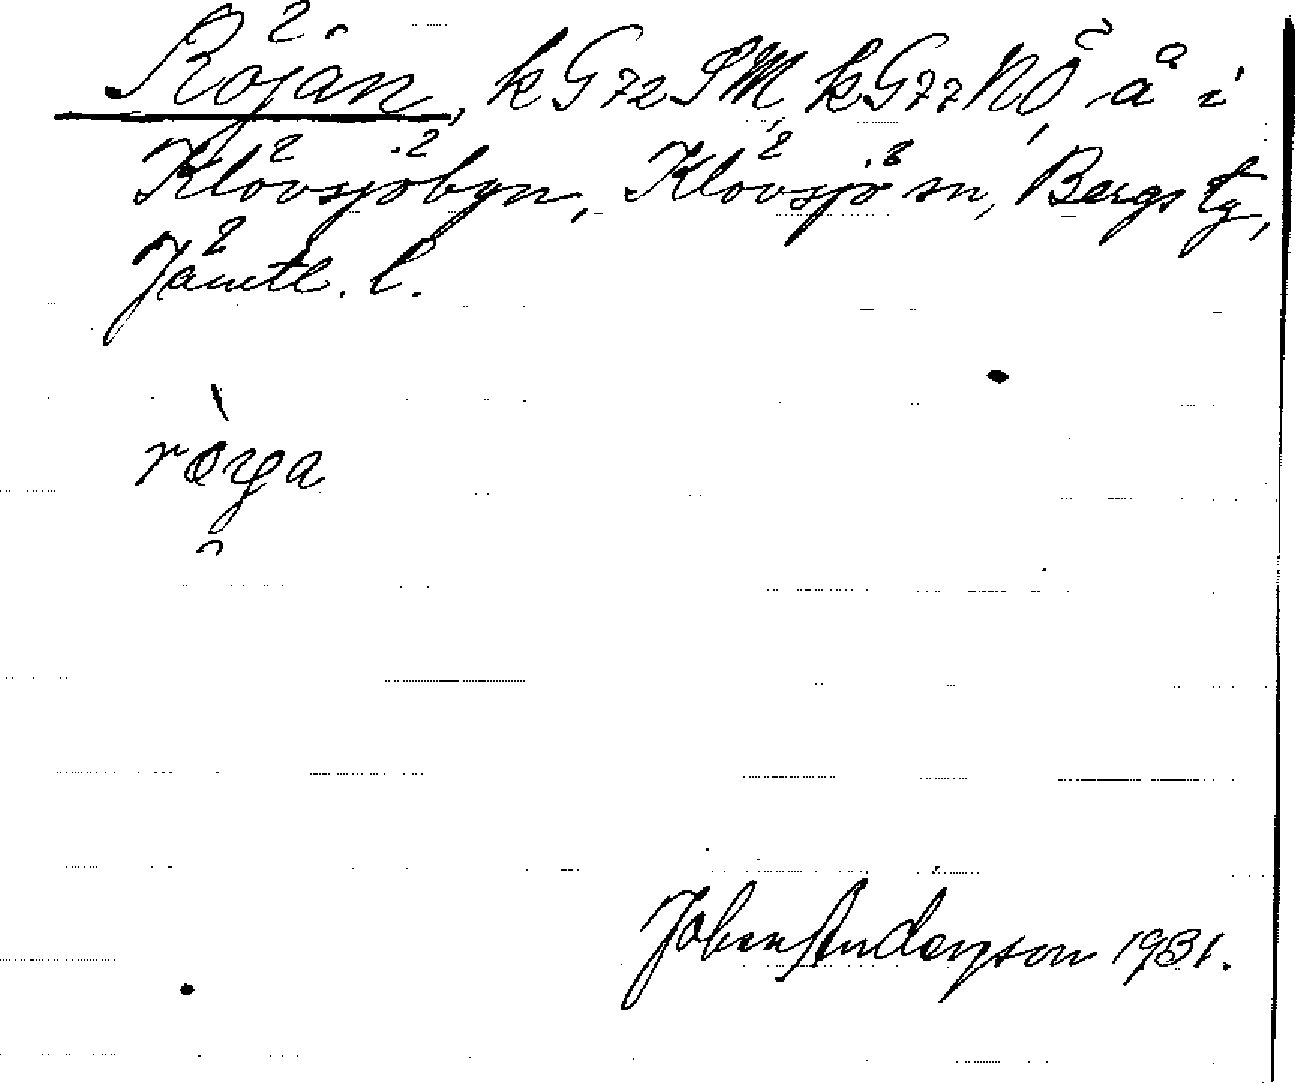 Röjan, kG72SM, kG77NÖ, å i
Klövsjöbyn, Klövsjö sn, Bergs tg,
Jämtl. l.
ròya
Johan Anderson 1931.